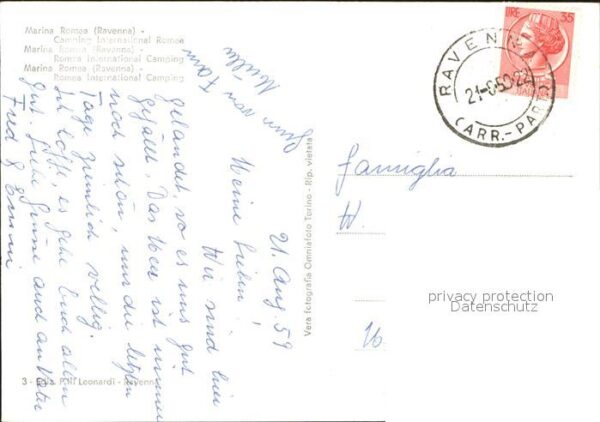 Marina Romea (Ravenna) -
Camping International Romea
Marina Romea (Ravenna) -
Romea International Camping
Marina Romea (Ravenna) -
Romea International Camping
21. Aug. 59
Meine Lieben!
Wir sind hier
gelandet, wo es uns gut
gefällt. Das Meer ist immer
noch schön, nur die letzten
Tage ziemlich wellig.
Ich hoffe, es gehe Euch allen
gut. Liebe Grüsse auch an Vater
Fred & Emmi
3 - Ediz. F.lli Leonardi - Ravenna
Vera fotografia Omniafoto Torino - Rip. vietata
LIRE 35
RAVENNA
21-8-59-22
(ARR.-PART.)
Famiglia
W.
privacy protection
Datenschutz